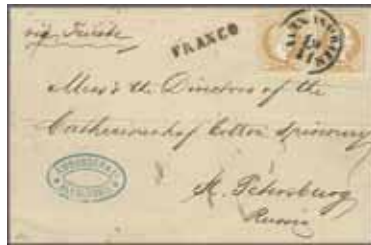 via Trieste
FRANCO
Mess'rs the Directors of the
Catherinenhof Cotton Spinnery
St. Petersburg
Russia